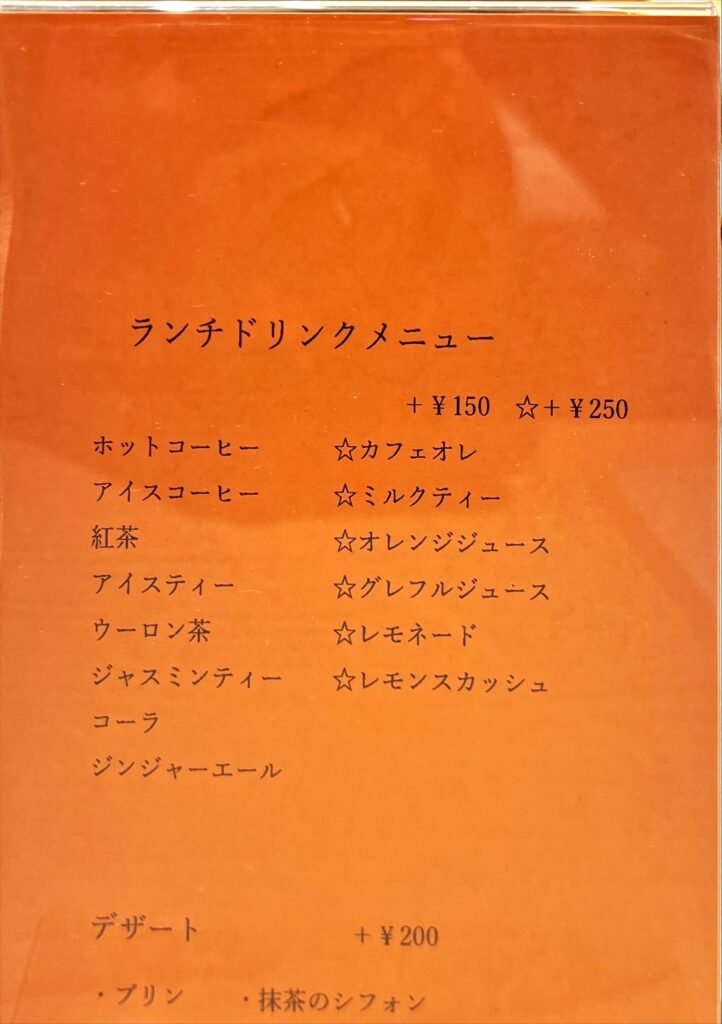 ランチドリンクメニュー
+¥150 ☆+¥250
ホットコーヒー ☆カフェオレ
アイスコーヒー ☆ミルクティー
紅茶 ☆オレンジジュース
アイスティー ☆グレフルジュース
ウーロン茶 ☆レモネード
ジャスミンティー ☆レモンスカッシュ
コーラ
ジンジャーエール
デザート +¥200
・プリン ・抹茶のシフォン